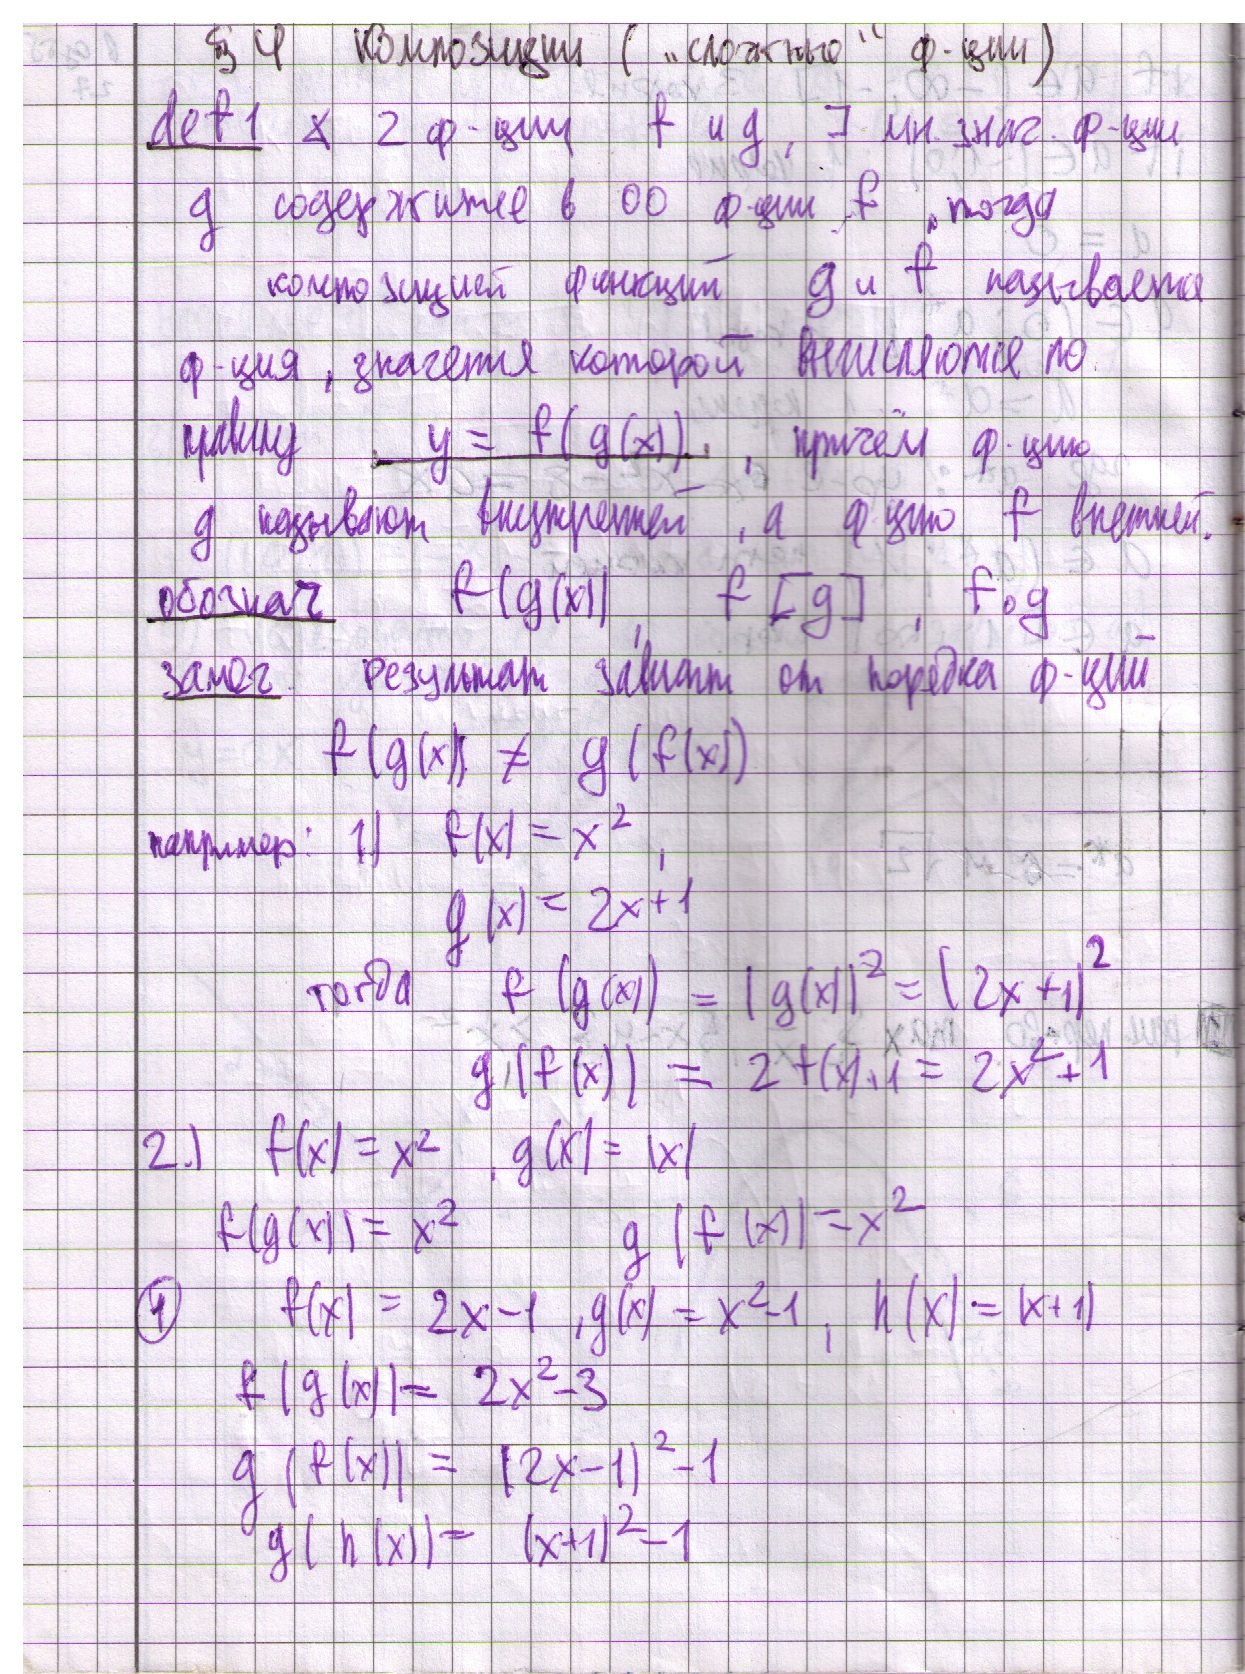 §4 Композиции („сложные“ ф-ции)
def 1 ∡ 2 ф-ции f и g, ∃ мн. знач. ф-ции
g содержится в ОО ф-ции f, тогда
композицией функций g и f называется
ф-ция, значения которой вычисляются по
правилу y = f(g(x)), причём ф-цию
g называют внутренней, а ф-цию f внешней.
обознач f(g(x)), f[g], f∘g
замеч. Результат зависит от порядка ф-ций
f(g(x)) ≠ g(f(x))
например: 1) f(x) = x²,
g(x) = 2x+1
тогда f(g(x)) = (g(x))² = (2x+1)²
g(f(x)) = 2f(x)+1 = 2x²+1
2.) f(x) = x², g(x) = |x|
f(g(x)) = x² g(f(x)) = x²
① f(x) = 2x-1, g(x) = x²-1, h(x) = |x+1|
f(g(x)) = 2x²-3
g(f(x)) = (2x-1)²-1
g(h(x)) = (x+1)²-1